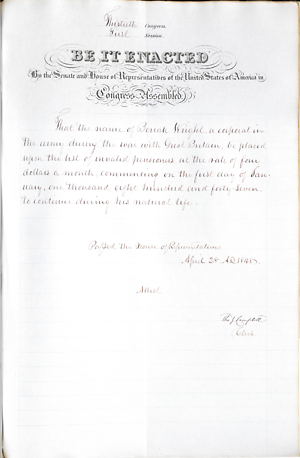 Thirtieth Congress.
First Session.
BE IT ENACTED
By the Senate and House of Representatives of the United States of America in
Congress Assembled,
That the name of Josiah Wright, a corporal in
the army during the war with Great Britain, be placed
upon the list of invalid pensioners at the rate of four
dollars a month commencing on the first day of Jan-
uary, one thousand eight hundred and forty seven
to continue during his natural life.
Passed the House of Representatives
April 28
Attest
Campbell
Clerk